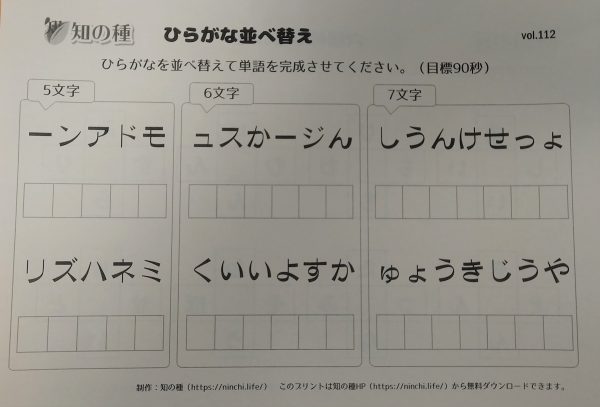 知の種 ひらがな並べ替え vol.112
ひらがなを並べ替えて単語を完成させてください。（目標90秒）
5文字
ーンアドモ
リズハネミ
6文字
ュスかージん
くいいよすか
7文字
しうんけせっょ
ゅょうきじうや
制作：知の種（https://ninchi.life/） このプリントは知の種HP（https://ninchi.life/）から無料ダウンロードできます。